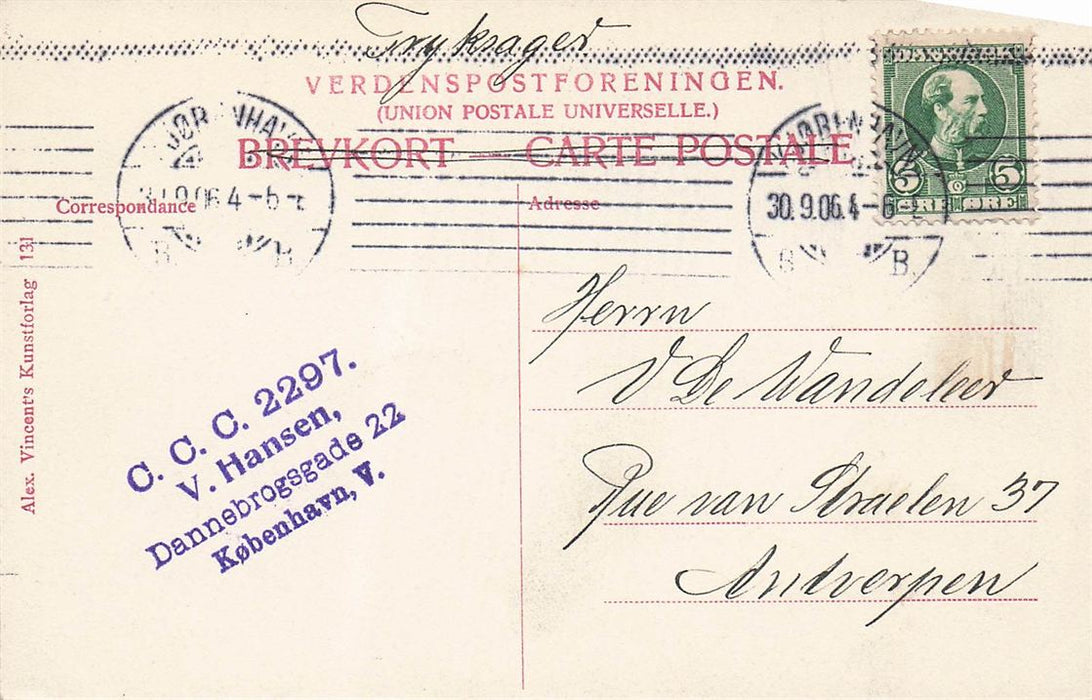 Tryksager
VERDENSPOSTFORENINGEN.
(UNION POSTALE UNIVERSELLE.)
BREVKORT — CARTE POSTALE
DANMARK
5 5
ØRE ØRE
KJØBENHAVN
30.9.06. 4-6 E
B. B.
KJØBENHAVN
30.9.06. 4-6 E
B. B.
Correspondance
Adresse
Alex. Vincent's Kunstforlag 131
C. C. C. 2297.
V. Hansen,
Dannebrogsgade 22
København, V.
Herrn
V De Wandeleer
Rue van Straelen 37
Antverpen